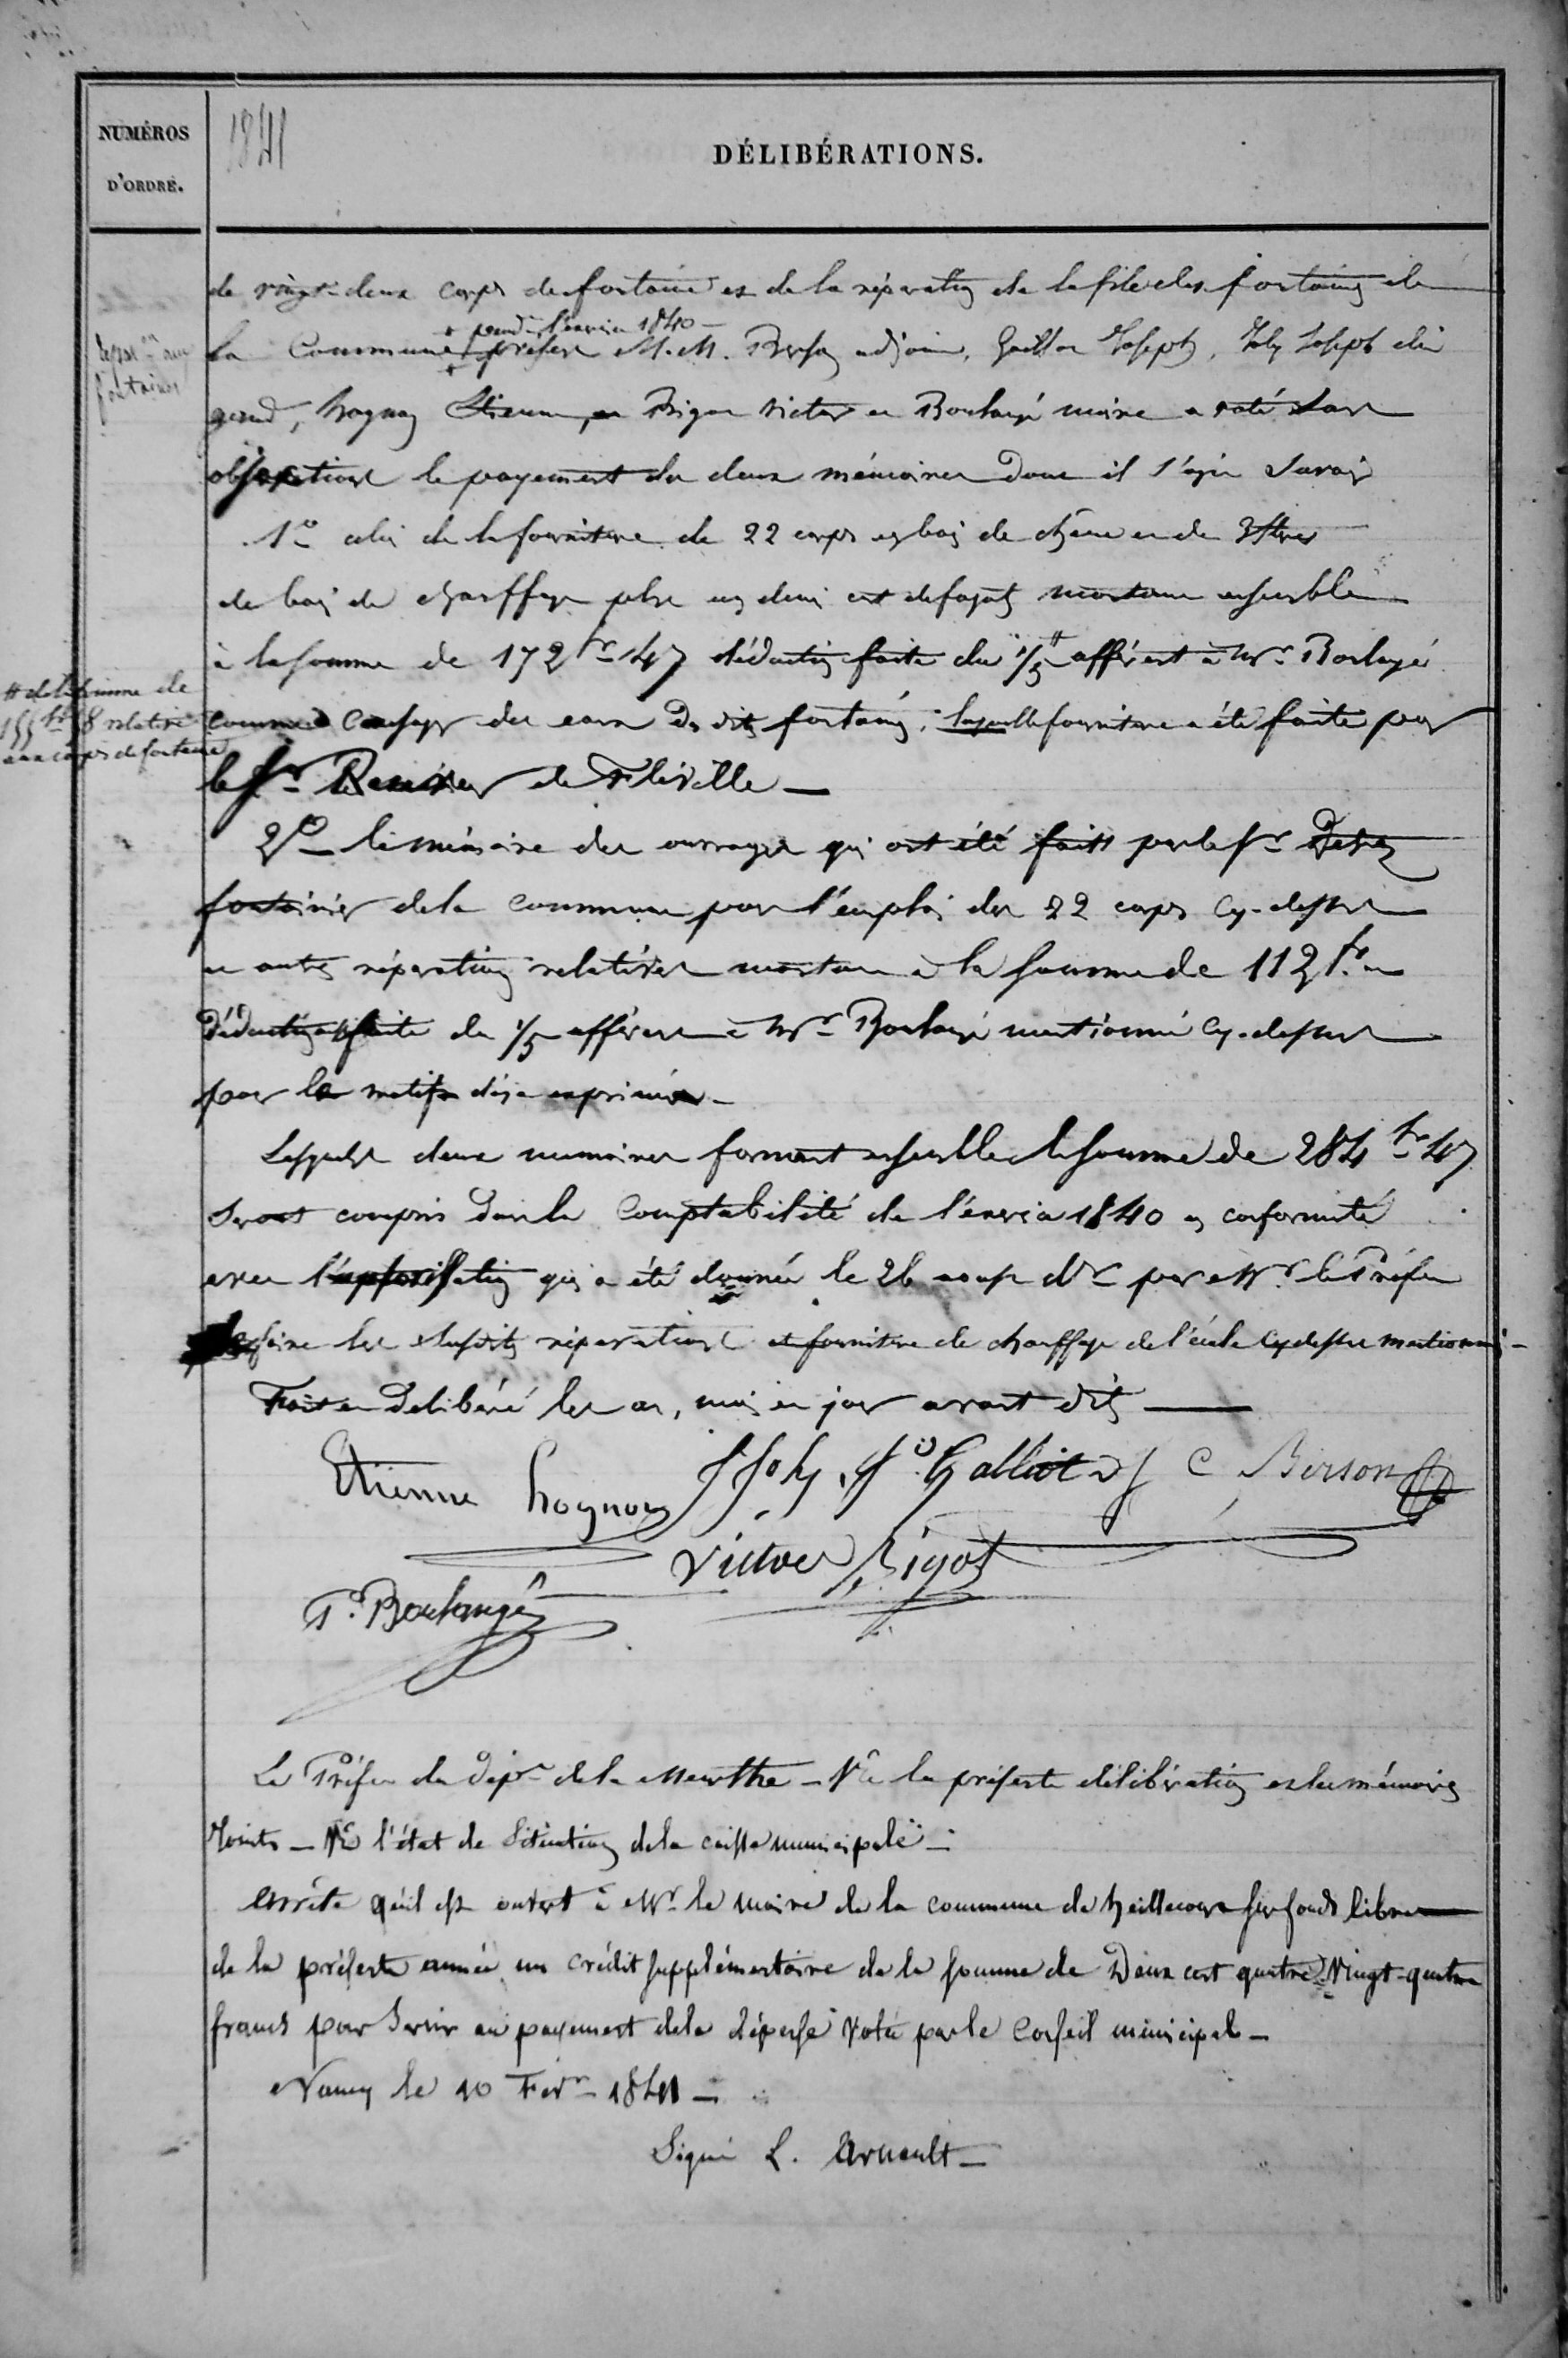 NUMÉROS
D'ORDRE.
1841
DÉLIBÉRATIONS.
de vingt-deux corps de fontaine et de la réparation de la file des fontaines de
+ pendt l'exercice 1840 —
Répar on aux
fontaines
la Commune + présents M.M. Berson adjoint, Galliot Joseph, Joly Joseph
Hognon Etienne, et Bigot Victor et Boulangé maire a voté sans
objections le payement des deux mémoires dont il s'agit Savoir
1o celui de la fourniture de 22 corps en bois de chêne et de 3 stères
de bois de chauffage plus un demi cent de fagots montant ensemble
à la somme de 172 fr 47 déduction faite du 1/5 # afférent à Mr Boulangé
# de la somme de
155 fr 8 relative
aux corps de fontaine
comme des eaux des dites fontaines, laquelle fourniture a été faite par
le Sr de Fléville —
2o le mémoire des ouvrages qui ont été faits par le Sr
fontainier de la commune pour l'emploi des 22 corps cy-dessus
et autres réparations relatives montant à la somme de 112 fr
Déduction faite du 1/5 afférent à Mr Boulangé mentionné cy-dessus
pour les motifs déjà exprimés —
Lesquels deux memoires formant ensemble la somme de 284 fr 47
Seront compris dans la Comptabilité de l'exercice 1840 en conformité
avec l'autorisation qui a été donnée le 26 par Mr le Préfet
faire les susdites réparations et fourniture de chauffage de l'école cy dessus mentionnés —
Fait en Delibéré les an, mois et jour avant dits —
Etienne Hognon J Joly Jo Galliot J C Berson
Victor Bigot
P. Boulangé
Le Préfet du Dépt de la Meurthe — Vu la présente délibération et les mémoires
Joints — Vu l'état de Situation de la caisse municipale —
Arrête qu'il est ouvert à Mr le Maire de la commune de heillecourt sur fonds libres
de la présente année un crédit supplémentaire de la somme de Deux cent quatre-Vingt-quatre
francs pour Servir au payement de la dépense Votée par le Conseil municipal —
Nancy le 10 Févr 1841 —
Signé L. Arnault —